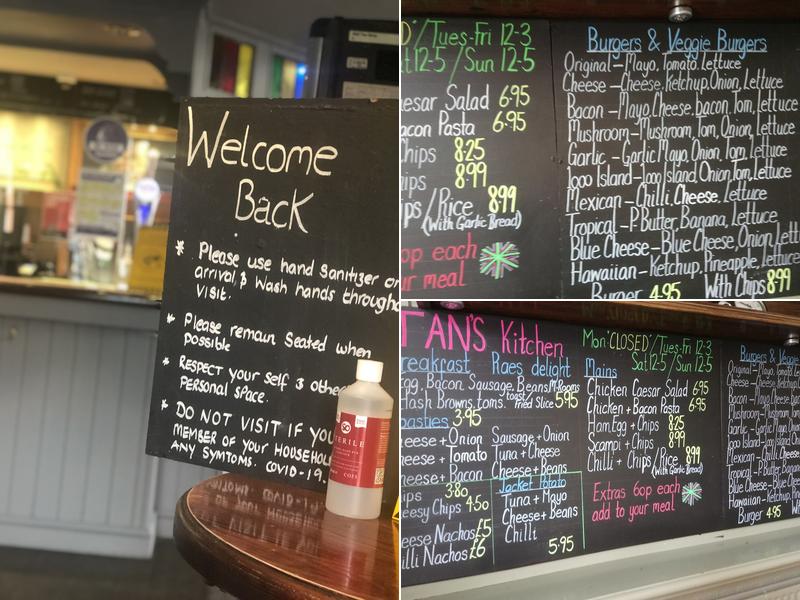 Welcome
Back
* Please use hand sanitizer on
arrival, & wash hands througho
visit.
* Please remain seated when
possible
* Respect your self & othe
personal space.
* DO NOT VISIT IF YOU
MEMBER OF YOUR HOUSEHOL
ANY SYMTOMS. COVID-19.
TERILE
D'/Tues-Fri 12-3
t 12-5/Sun 12-5
aesar Salad 6.95
acon Pasta 6.95
Chips 8.25
ips 8.99
ips/Rice 8.99
(With Garlic Bread)
op each
ur meal
Burgers & Veggie Burgers
Original - Mayo, Tomato, Lettuce
Cheese - Cheese, Ketchup, Onion, Lettuce
Bacon - Mayo, Cheese, bacon, Tom, Lettuce
Mushroom - Mushroom, Tom, Onion, Lettuce
Garlic - Garlic Mayo, Onion, Tom, Lettuce
1000 Island - 1000 Island, Onion, Tom, Lettuce
Mexican - Chilli, Cheese, Lettuce
Tropical - P Butter, Banana, Lettuce
Blue Cheese - Blue Cheese, Onion, Lett
Hawaiian - Ketchup, Pineapple, Lettuce
Burger 4.95 With Chips 8.99
TAN'S Kitchen
Mon 'CLOSED'/Tues-Fri 12-3
Sat 12-5/Sun 12-5
reakfast Raes delight
Egg, Bacon, Sausage, Beans, M.Rooms
Hash Browns, toms, toast/Fried Slice 5.95
oasties 3.95
heese + Onion
heese + Tomato
heese + Bacon
Sausage + Onion
Tuna + Cheese
Cheese + Beans
ips 3.80
heesy Chips 4.50
heese Nachos £5
hilli Nachos £6
Jacket Potato
Tuna + Mayo
Cheese + Beans
Chilli
5.95
Mains
Chicken Caesar Salad 6.95
Chicken + Bacon Pasta 6.95
Ham, Egg + Chips 8.25
Scampi + Chips 8.99
Chilli + Chips/Rice 8.99
(With Garlic Bread)
Extras 60p each
add to your meal
Burgers & Veggie
Original - Mayo, Tomato, Lettuce
Cheese - Cheese, Ketchup, Onion
Bacon - Mayo, Cheese, bacon
Mushroom - Mushroom
Garlic - Garlic Mayo, Onion
1000 Island - 1000 Island
Mexican - Chilli, Cheese, Le
Tropical - P Butter, Banana
Blue Cheese - Blue Chee
Hawaiian - Ketchup, Pine
Burger 4.95 With